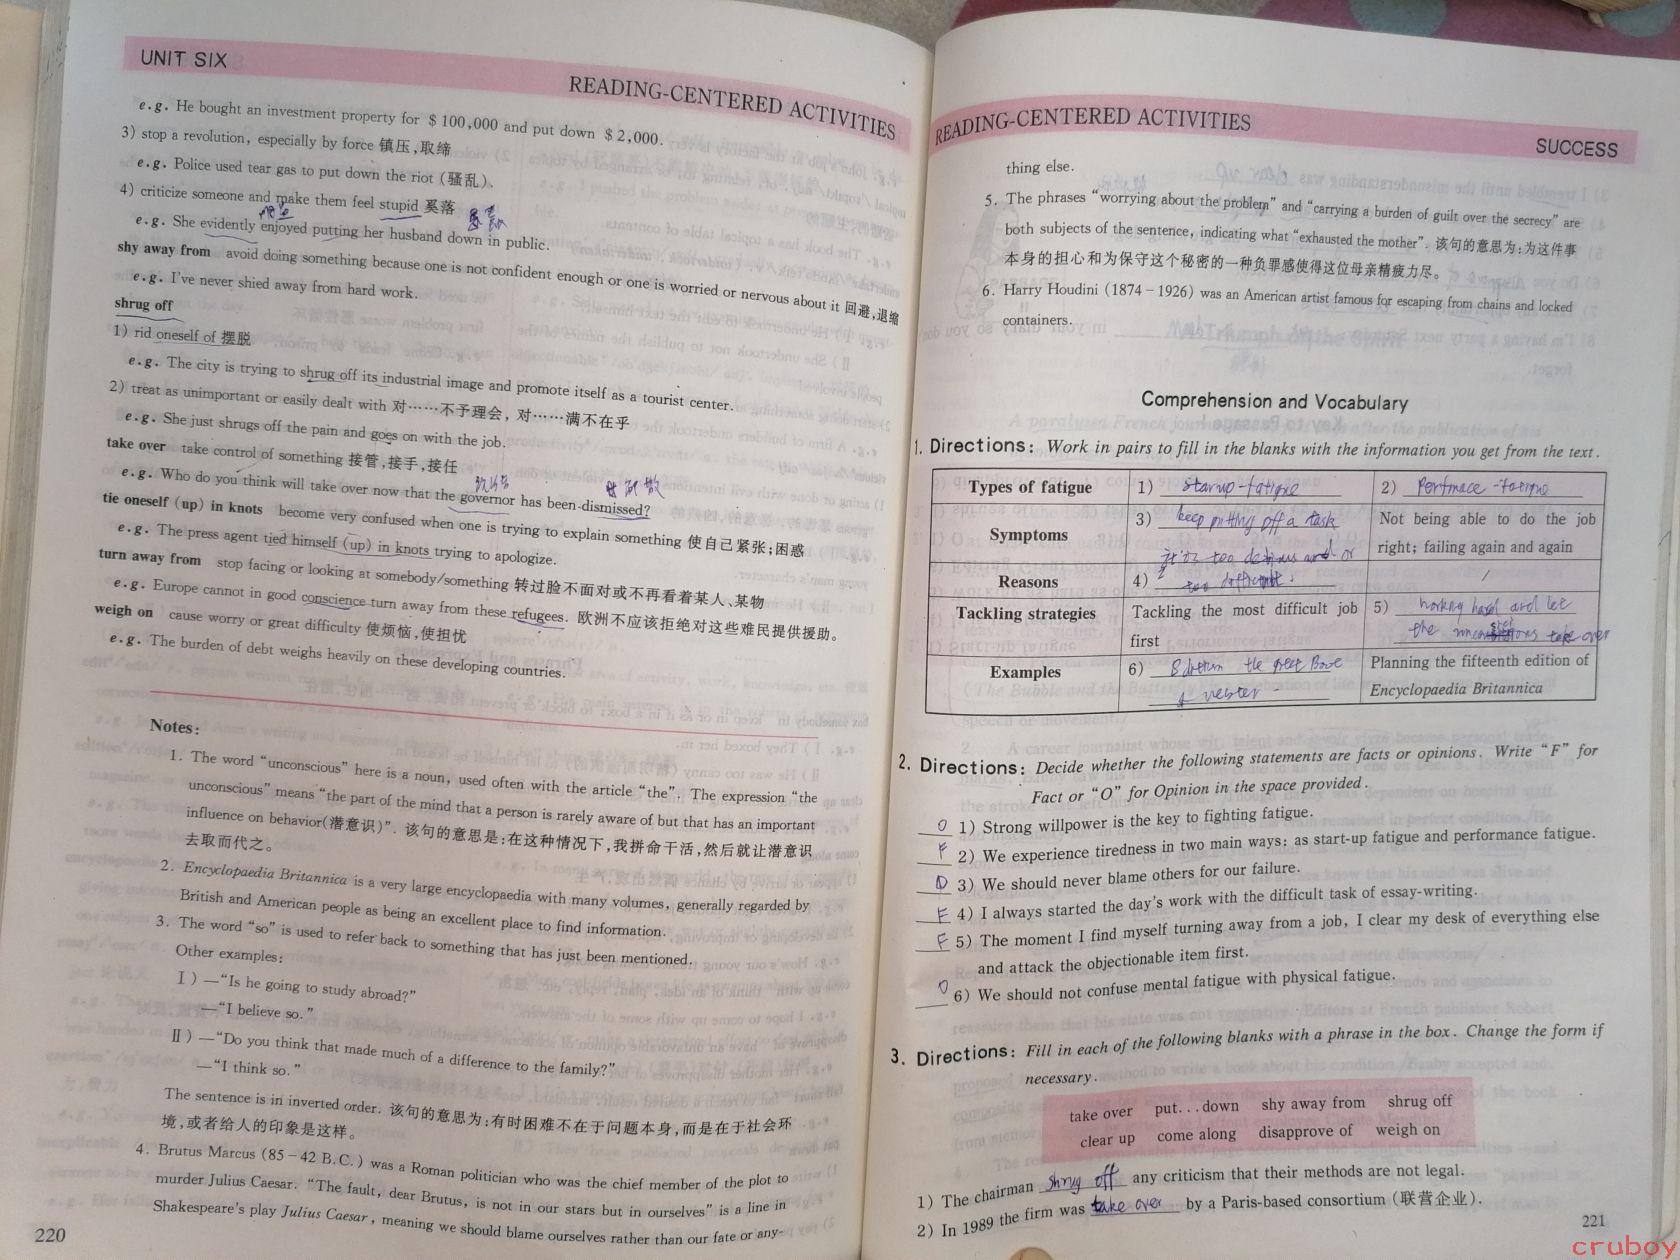 UNIT SIX
READING-CENTERED ACTIVITIES
e.g. He bought an investment property for $100,000 and put down $2,000.
3) stop a revolution, especially by force 镇压,取缔
e.g. Police used tear gas to put down the riot (骚乱).
4) criticize someone and make them feel stupid 奚落
e.g. She evidently enjoyed putting her husband down in public.
shy away from avoid doing something because one is not confident enough or one is worried or nervous about it 回避,退缩
e.g. I've never shied away from hard work.
shrug off
1) rid oneself of 摆脱
e.g. The city is trying to shrug off its industrial image and promote itself as a tourist center.
2) treat as unimportant or easily dealt with 对……不予理会, 对……满不在乎
e.g. She just shrugs off the pain and goes on with the job.
take over take control of something 接管,接手,接任
e.g. Who do you think will take over now that the governor has been dismissed?
tie oneself (up) in knots become very confused when one is trying to explain something 使自己紧张;困惑
e.g. The press agent tied himself (up) in knots trying to apologize.
turn away from stop facing or looking at somebody/something 转过脸不面对或不再看着某人、某物
e.g. Europe cannot in good conscience turn away from these refugees. 欧洲不应该拒绝对这些难民提供援助。
weigh on cause worry or great difficulty 使烦恼,使担忧
e.g. The burden of debt weighs heavily on these developing countries.
Notes:
1. The word "unconscious" here is a noun, used often with the article "the". The expression "the
unconscious" means "the part of the mind that a person is rarely aware of but that has an important
influence on behavior(潜意识)". 该句的意思是:在这种情况下,我拼命干活,然后就让潜意识
去取而代之。
2. Encyclopaedia Britannica is a very large encyclopaedia with many volumes, generally regarded by
British and American people as being an excellent place to find information.
3. The word "so" is used to refer back to something that has just been mentioned.
Other examples:
Ⅰ) —"Is he going to study abroad?"
—"I believe so."
Ⅱ) —"Do you think that made much of a difference to the family?"
—"I think so."
The sentence is in inverted order. 该句的意思为:有时困难不在于问题本身,而是在于社会环
境,或者给人的印象是这样。
4. Brutus Marcus (85-42 B.C.) was a Roman politician who was the chief member of the plot to
murder Julius Caesar. "The fault, dear Brutus, is not in our stars but in ourselves" is a line in
Shakespeare's play Julius Caesar, meaning we should blame ourselves rather than our fate or any-
220
READING-CENTERED ACTIVITIES
SUCCESS
thing else.
5. The phrases "worrying about the problem" and "carrying a burden of guilt over the secrecy" are
both subjects of the sentence, indicating what "exhausted the mother". 该句的意思为:为这件事
本身的担心和为保守这个秘密的一种负罪感使得这位母亲精疲力尽。
6. Harry Houdini (1874-1926) was an American artist famous for escaping from chains and locked
containers.
Comprehension and Vocabulary
1. Directions: Work in pairs to fill in the blanks with the information you get from the text.
Types of fatigue 1) starup-fatigue 2)
Symptoms 3) keep putting off a task Not being able to do the job
right; failing again and again
Reasons 4) it is too or too difficult. /
Tackling strategies Tackling the most difficult job 5) working hard and let
first the take over
Examples 6) the great Planning the fifteenth edition of
Encyclopaedia Britannica
2. Directions: Decide whether the following statements are facts or opinions. Write "F" for
Fact or "O" for Opinion in the space provided.
O 1) Strong willpower is the key to fighting fatigue.
F 2) We experience tiredness in two main ways: as start-up fatigue and performance fatigue.
O 3) We should never blame others for our failure.
F 4) I always started the day's work with the difficult task of essay-writing.
F 5) The moment I find myself turning away from a job, I clear my desk of everything else
and attack the objectionable item first.
O 6) We should not confuse mental fatigue with physical fatigue.
3. Directions: Fill in each of the following blanks with a phrase in the box. Change the form if
necessary.
take over put...down shy away from shrug off
clear up come along disapprove of weigh on
1) The chairman shrug off any criticism that their methods are not legal.
2) In 1989 the firm was take over by a Paris-based consortium (联营企业).
221
cruboy